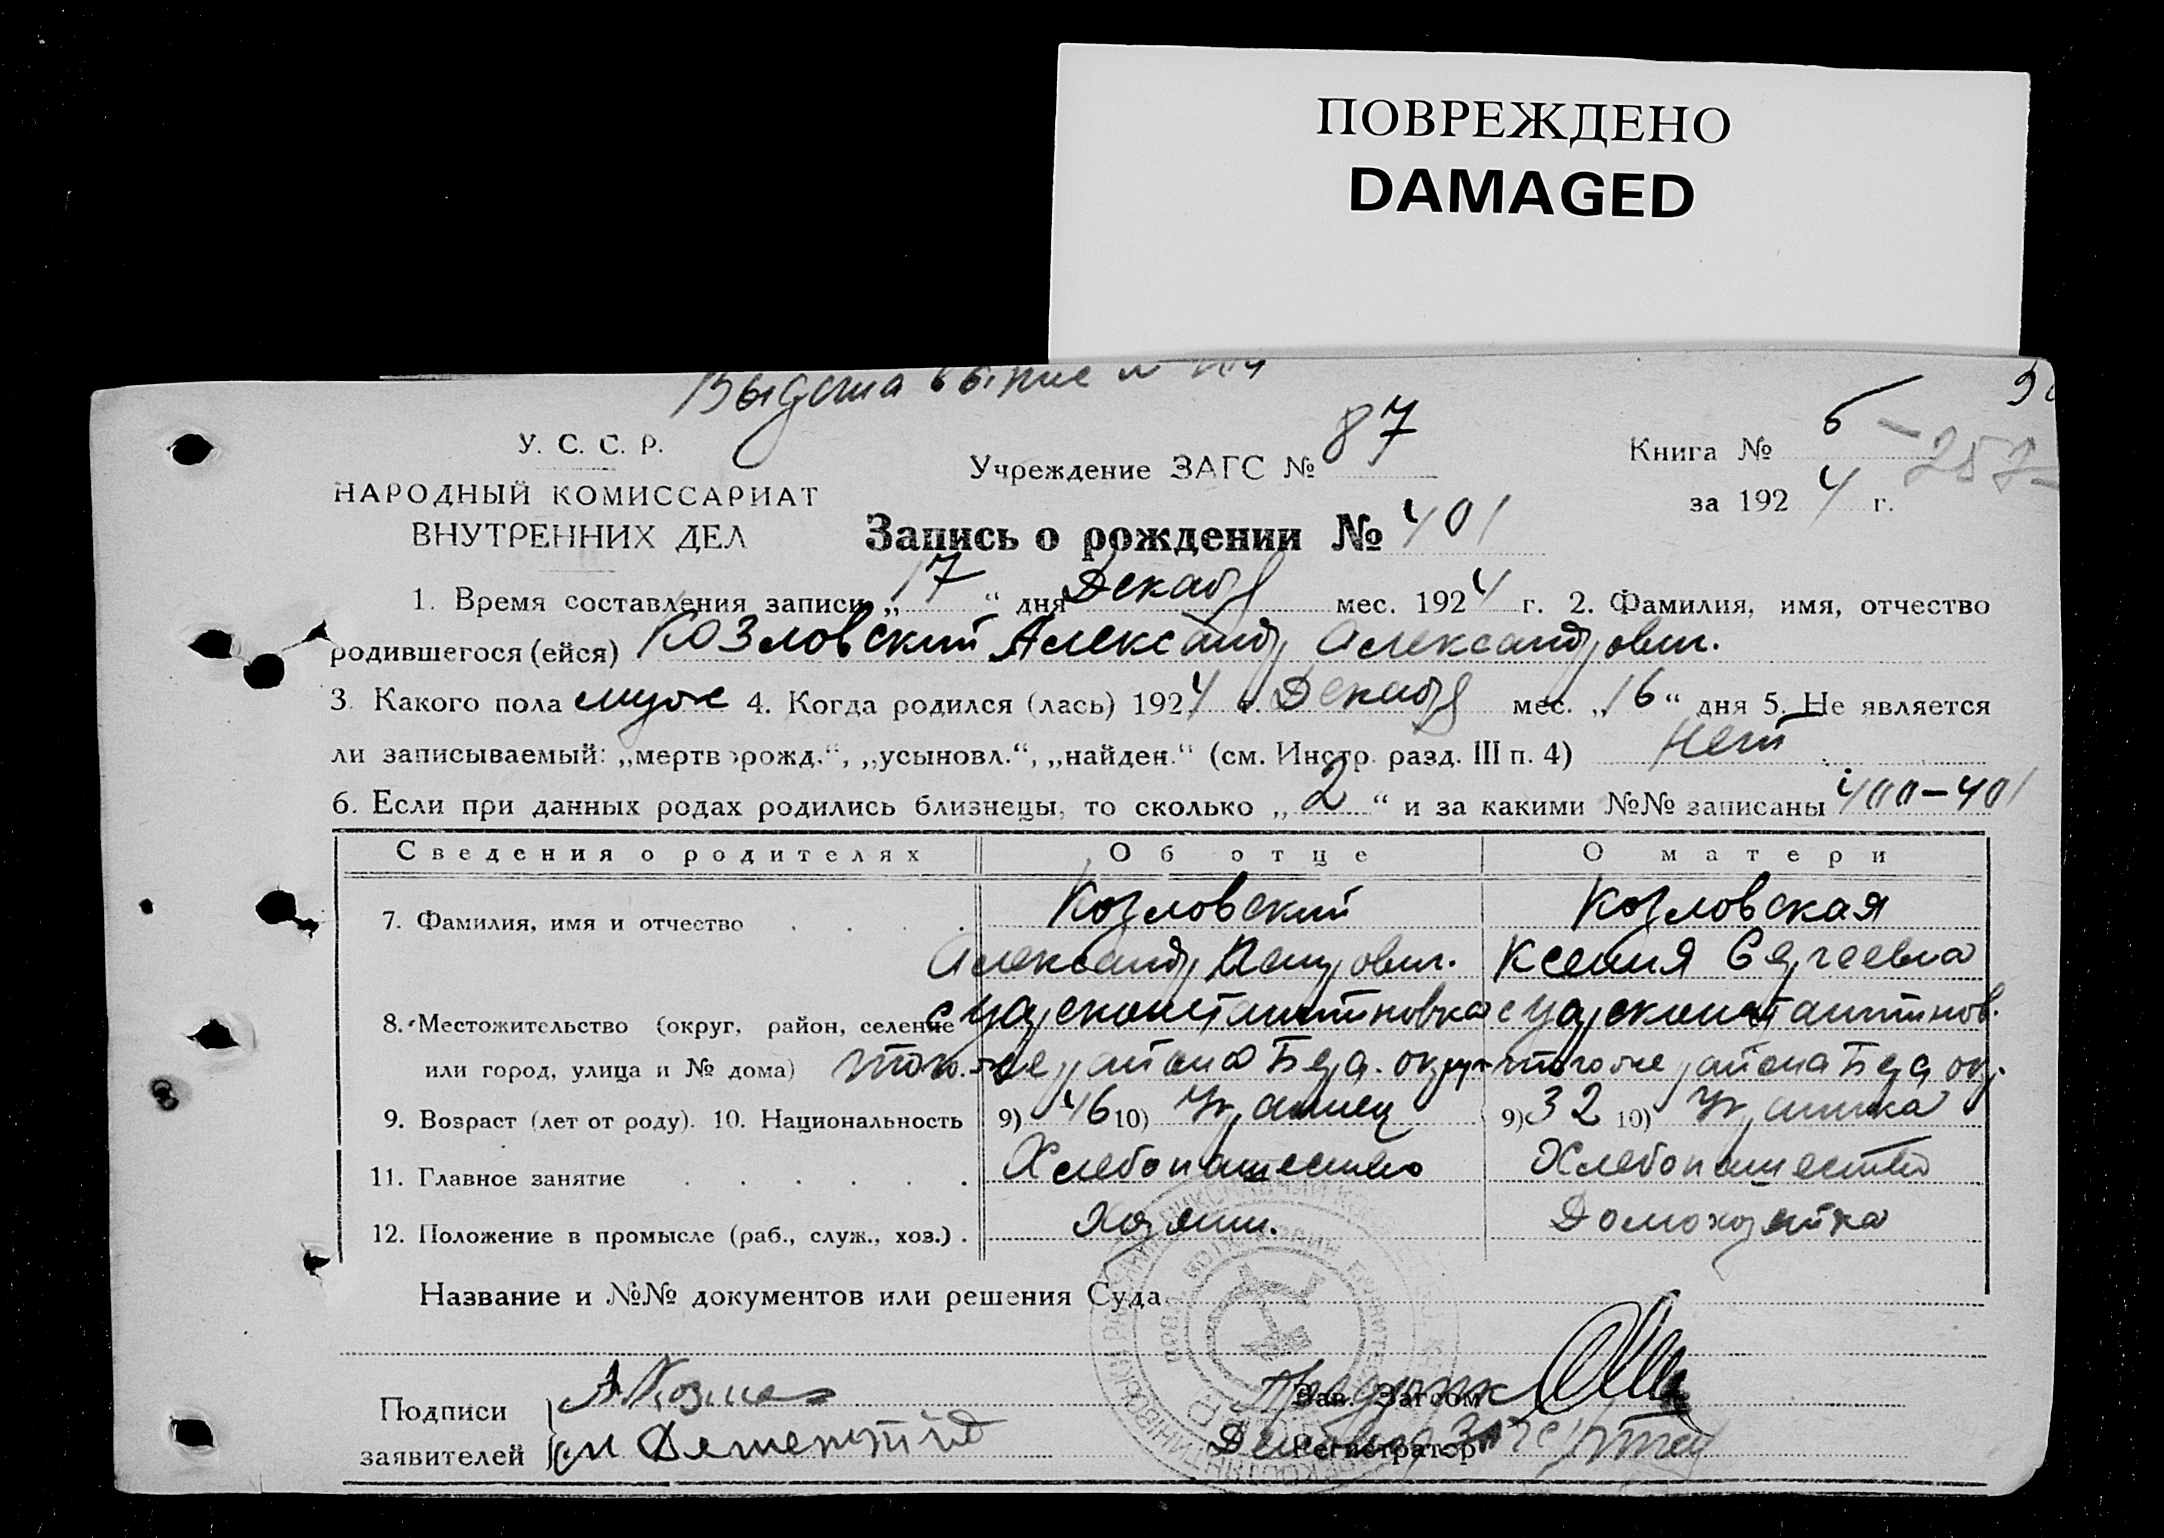 ПОВРЕЖДЕНО
DAMAGED
Выдана
У. С. С. Р.
НАРОДНЫЙ КОМИССАРИАТ
ВНУТРЕННИХ ДЕЛ
Учреждение ЗАГС № 87
Книга № 6 - 257-
за 1924 г.
Запись о рождении № 401
1. Время составления записи „17“ дня Декабр мес. 1924 г. 2. Фамилия, имя, отчество
родившегося (ейся) Козловский Александр Александрович.
3. Какого пола муже 4. Когда родился (лась) 1924 г. Декабр мес. „16“ дня 5. Не является
ли записываемый: „мертворожд.“, „усыновл.“, „найден.“ (см. Инстр. разд. III п. 4) нет
6. Если при данных родах родились близнецы, то сколько „2“ и за какими №№ записаны 400-401
Сведения о родителях Об отце О матери
7. Фамилия, имя и отчество . . . . Козловский Козловская
Александр Ксения Сергеевна
8. Местожительство (округ, район, селение с Цареконстантиновка с Цареконстантинов.
или город, улица и № дома) того-же района Берд. округ того же района Берд окр.
9. Возраст (лет от роду). 10. Национальность 9) 46 10) Украинец 9) 32 10) Украинка
11. Главное занятие . . . . . . Хлебопашество Хлебопашество
12. Положение в промысле (раб., служ., хоз.) . Хозяин. Домохозяйка
Название и №№ документов или решения Суда
Подписи
заявителей
Зав. Загсом
Регистратор